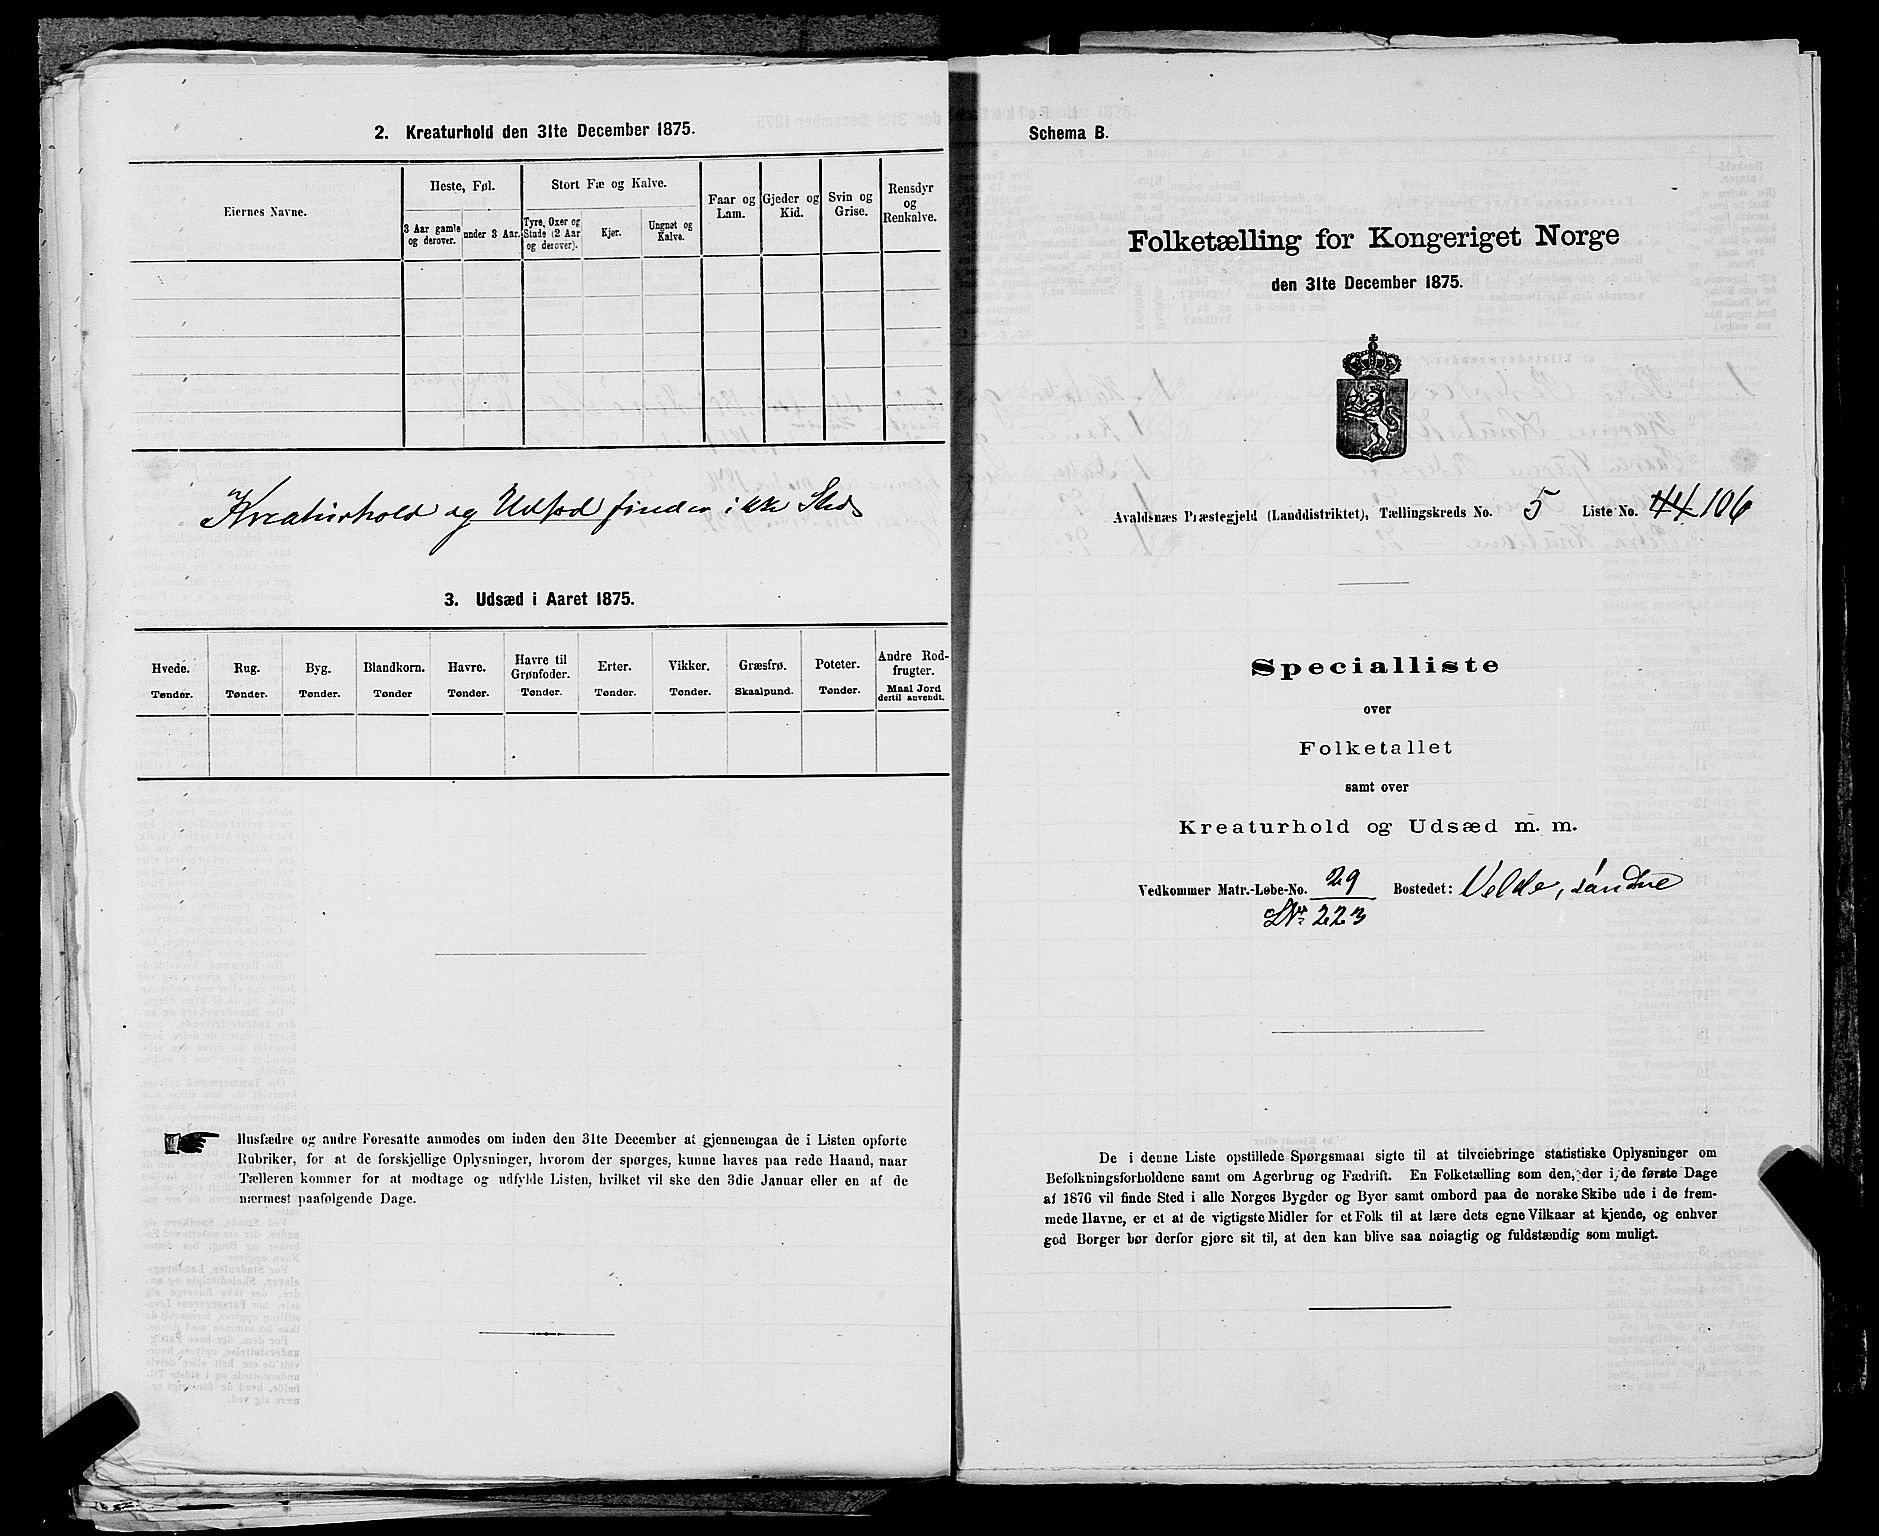 2. Kreaturhold den 31te December 1875.
Eiernes Navne.
Heste, Føl.
Stort Fæ og Kalve.
Faar og Lam.
Gjeder og Kid.
Svin og Grise.
Rensdyr og Renkalve.
3 Aar gamle og derover.
under 3 Aar.
Tyre, Oxer og Stude (2 Aar og derover).
Kjer.
Ungnøt og Kalve.
Kreaturhold og Udsæd finder ikke Sted
3. Udsæd i Aaret 1875.
Hvede. Tønder.
Rug. Tønder.
Byg. Tønder.
Blandkorn. Tønder
Havre. Tønder.
Havre til Grønfoder. Tønder.
Erter. Tønder.
Vikker. Tønder.
Græsfrø. Skaalpund.
Poteter. Tønder.
Andre Rodfrugter. Maal Jord dertil anvendt.
Husfædre og andre Foresatte anmodes om inden den 31te December at gjennemgaa de i Listen opførte
Rubriker, for at de forskjellige Oplysninger, hvorom der spørges, kunne haves paa rede Haand, naar
Tælleren kommer for at modtage og udfylde Listen, hvilket vil ske den 3die Januar eller en af de
nærmest paafølgende Dage.
Schema B.
Folketælling for Kongeriget Norge
den 31te December 1875.
Avaldsnæs Præstegjeld (Landdistriktet), Tællingskreds No. 5 Liste No. 44 106
Specialliste
over
Folketallet
samt over
Kreaturhold og Udsæd m. m.
Vedkommer Matr.-Løbe-No. 29 Bostedet: Velde, søndre
LNr. 223
De i denne Liste opstillede Spørgsmaal sigte til at tilveiebringe statistiske Oplysninger om
Befolkningsforholdene samt om Agerbrug og Fædrift. En Folketælling som den, der i de første Dage
af 1876 vil finde Sted i alle Norges Bygder og Byer samt ombord paa de norske Skibe ude i de frem-
mede Havne, er et af de vigtigste Midler for et Folk til at lære dets egne Vilkaar at kjende, og enhver
god Borger bør derfor gjøre sit til, at den kan blive saa nøiagtig og fuldstændig som muligt.